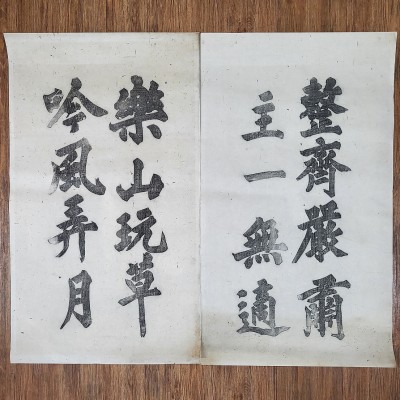 整齊嚴肅
主一無適
樂山玩草
吟風弄月